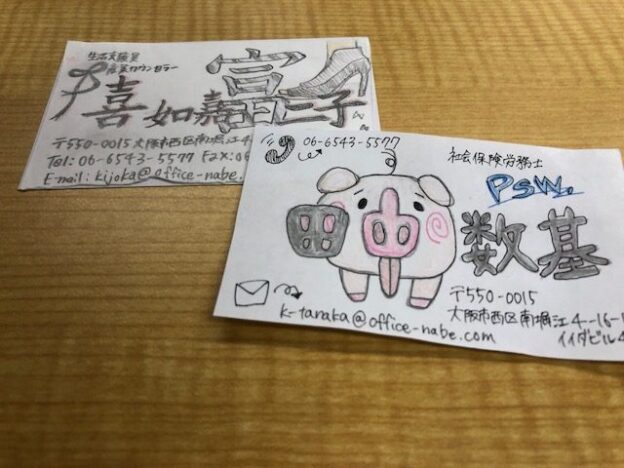 生活支援員
産業カウンセラー
喜如嘉 富二子
〒550-0015 大阪市西区南堀江4
Tel: 06-6543-5577 Fax: 06
E-mail: kijoka@office-nabe.
06-6543-5577
社会保険労務士
PSW.
田中 数基
〒550-0015
大阪市西区南堀江4-16-1
イイダビル4
k-tanaka@office-nabe.com